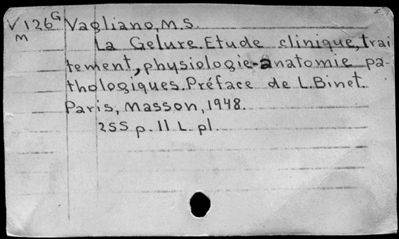 V 126 G Vagliano, M.S.
m
La Gelure. Etude clinique, trai
tement, physiologie-anatomie pa-
thologiques. Préface de L. Binet.
Paris, Masson, 1948.
255 p. II L. pl.